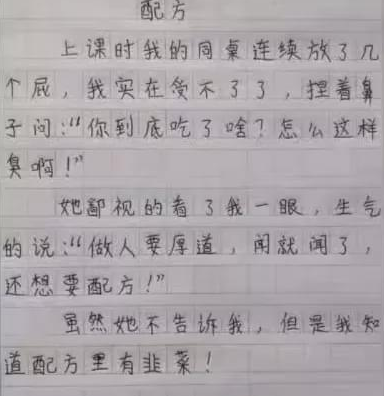 配方
上课时我的同桌连续放了几
个屁，我实在受不了了，捏着鼻
子问：“你到底吃了啥？怎么这样
臭啊！”
她鄙视的看了我一眼，生气
的说：“做人要厚道，闻就闻了，
还想要配方！”
虽然她不告诉我，但是我知
道配方里有韭菜！